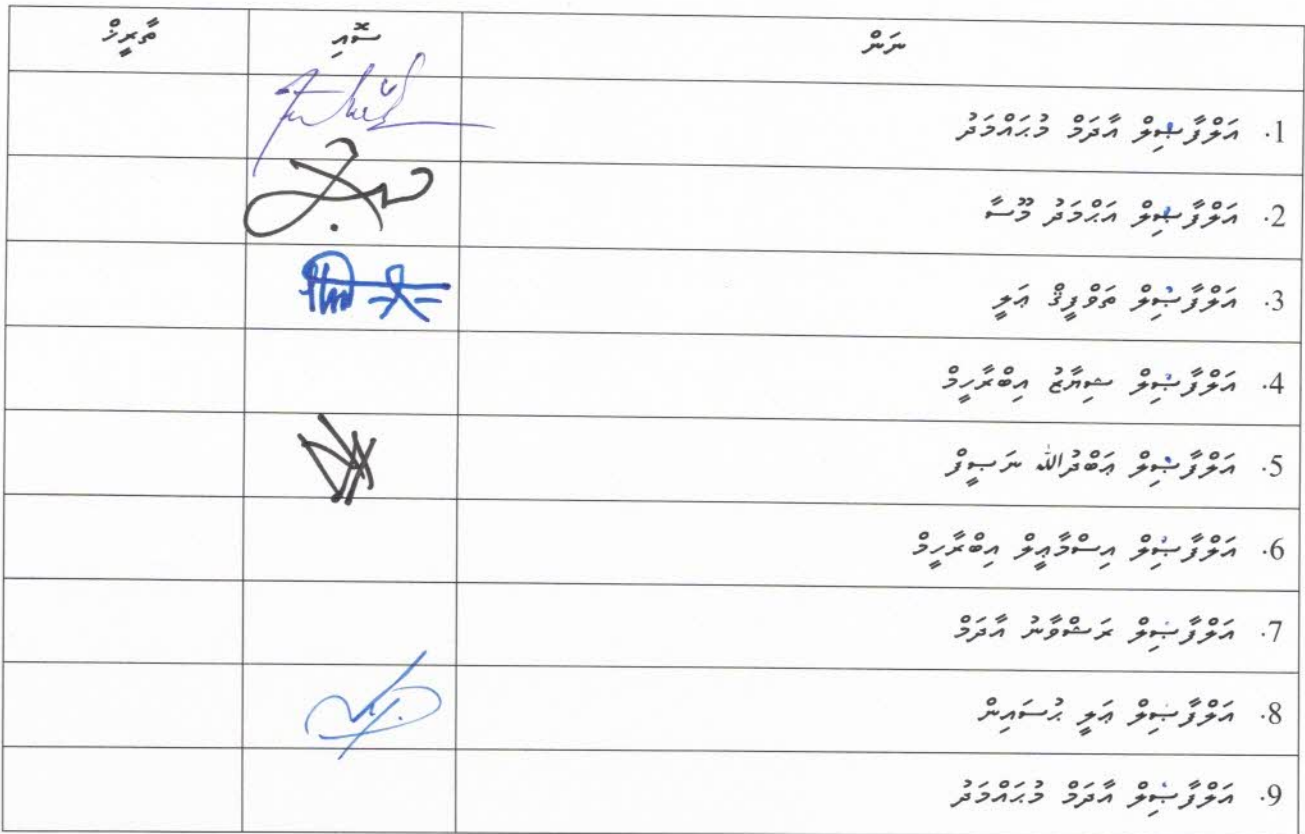 ނަން ސޮއި ތާރީޚް
1. އަލްފާޟިލް އާދަމް މުޙައްމަދު
2. އަލްފާޟިލް އަޙްމަދު މޫސާ
3. އަލްފާޟިލް ތަވްފީޤް ޢަލީ
4. އަލްފާޟިލް ޝިޔާޒު އިބްރާހިމް
5. އަލްފާޟިލް ޢަބްދުﷲ ނަޞީފް
6. އަލްފާޟިލް އިސްމާޢީލް އިބްރާހިމް
7. އަލްފާޟިލް ރަޝްވާން އާދަމް
8. އަލްފާޟިލް ޢަލީ ޙުސައިން
9. އަލްފާޟިލް އާދަމް މުޙައްމަދު